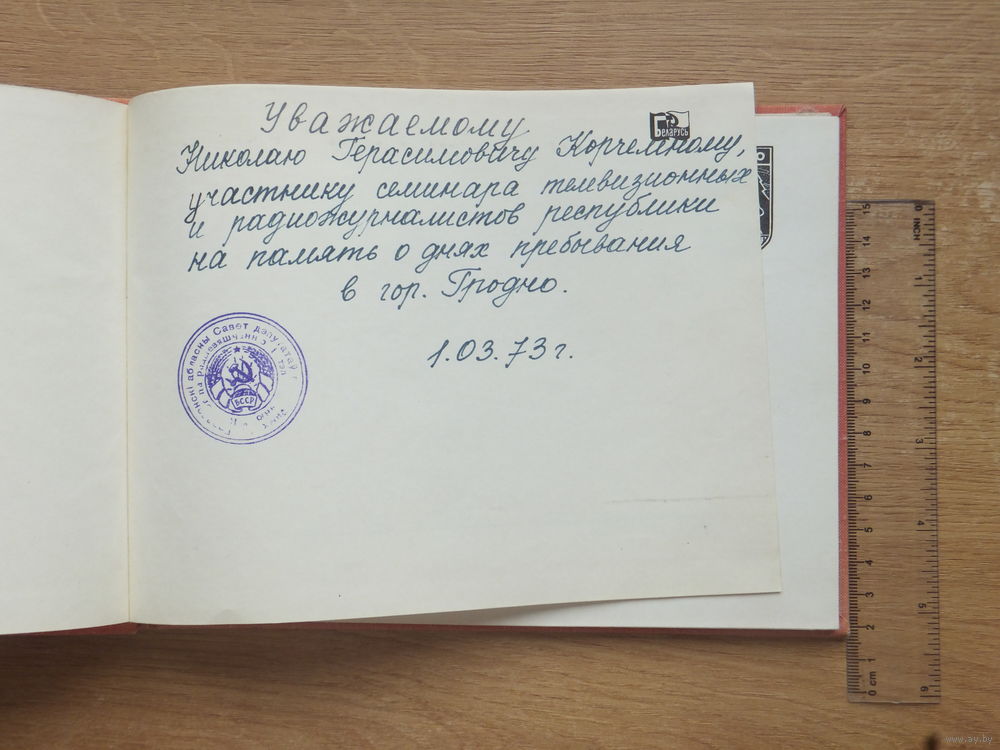 Уважаемому
Беларусь
Николаю Герасимовичу Корчемному,
участнику семинара телевизионных
и радиожурналистов республики
на память о днях пребывания
в гор. Гродно.
1.03.73 г.
абласны Савет дэпутатаў
БССР
0 INCH 1 2 3 4 5 6
15 14 13 12 11 10 9 8 7 6 5 4 3 2 1 0 cm
www.ay.by